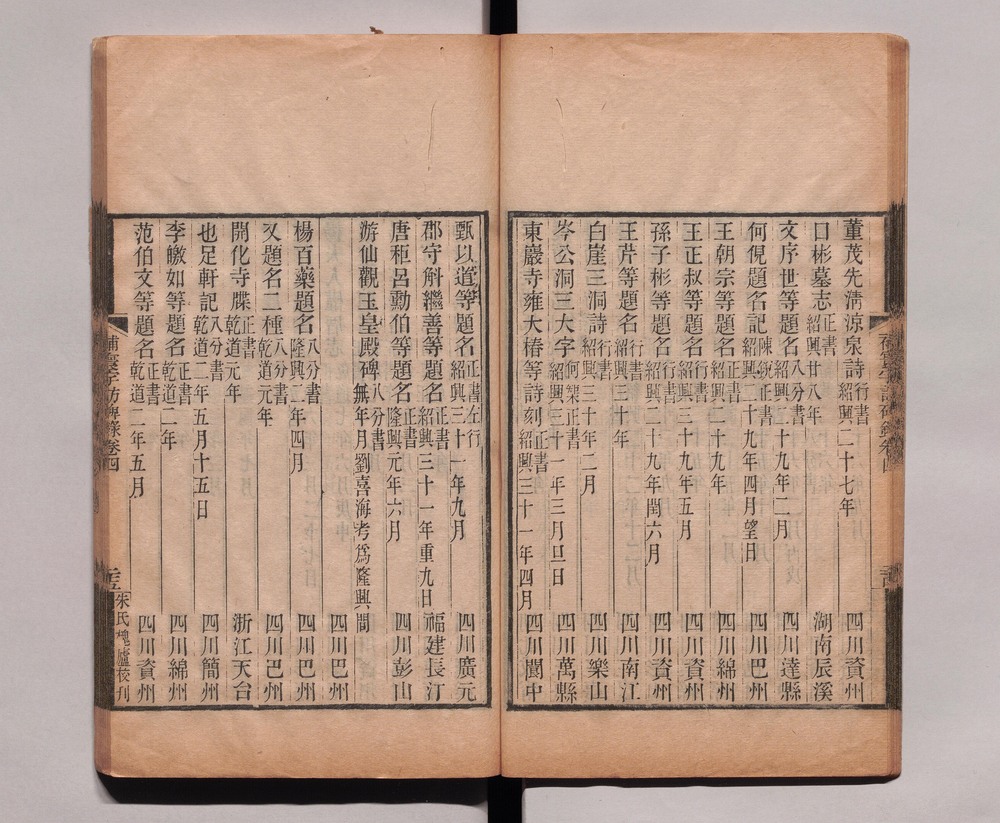 董茂先淸涼泉詩行書紹興二十七年 四川資州
口彬墓志正書紹興廿八年 湖南辰溪
文序世等題名八分書紹興二十九年二月 四川達縣
何俔題名記陳 正書紹興二十九年四月望日 四川巴州
王朝宗等題名正書紹興二十九年 四川綿州
王正叔等題名行書紹興二十九年五月 四川資州
孫子彬等題名行書紹興二十九年閏六月 四川資州
王芹等題名行書紹興三十年 四川南江
白崖三洞詩行書紹興三十年二月 四川樂山
岑公洞三大字何榘正書紹興三十一年三月旦日 四川萬縣
東巖寺雍大椿等詩刻正書紹興三十一年四月 四川閬中
甄以道等題名正書左行紹興三十一年九月 四川廣元
郡守斛繼善等題名正書紹興三十一年重九日 福建長汀
唐秬呂勳伯等題名正書隆興元年六月 四川彭山
游仙觀玉皇殿碑八分書無年月劉喜海考爲隆興間
四川巴州
楊百藥題名八分書隆興二年四月 四川巴州
又題名二種八分書乾道元年 四川巴州
開化寺牒正書乾道元年 浙江天台
也足軒記八分書乾道二年五月十五日 四川簡州
李皦如等題名正書乾道二年 四川綿州
范伯文等題名正書乾道二年五月 四川資州
補寰宇訪碑錄卷四
朱氏槐廬校刊